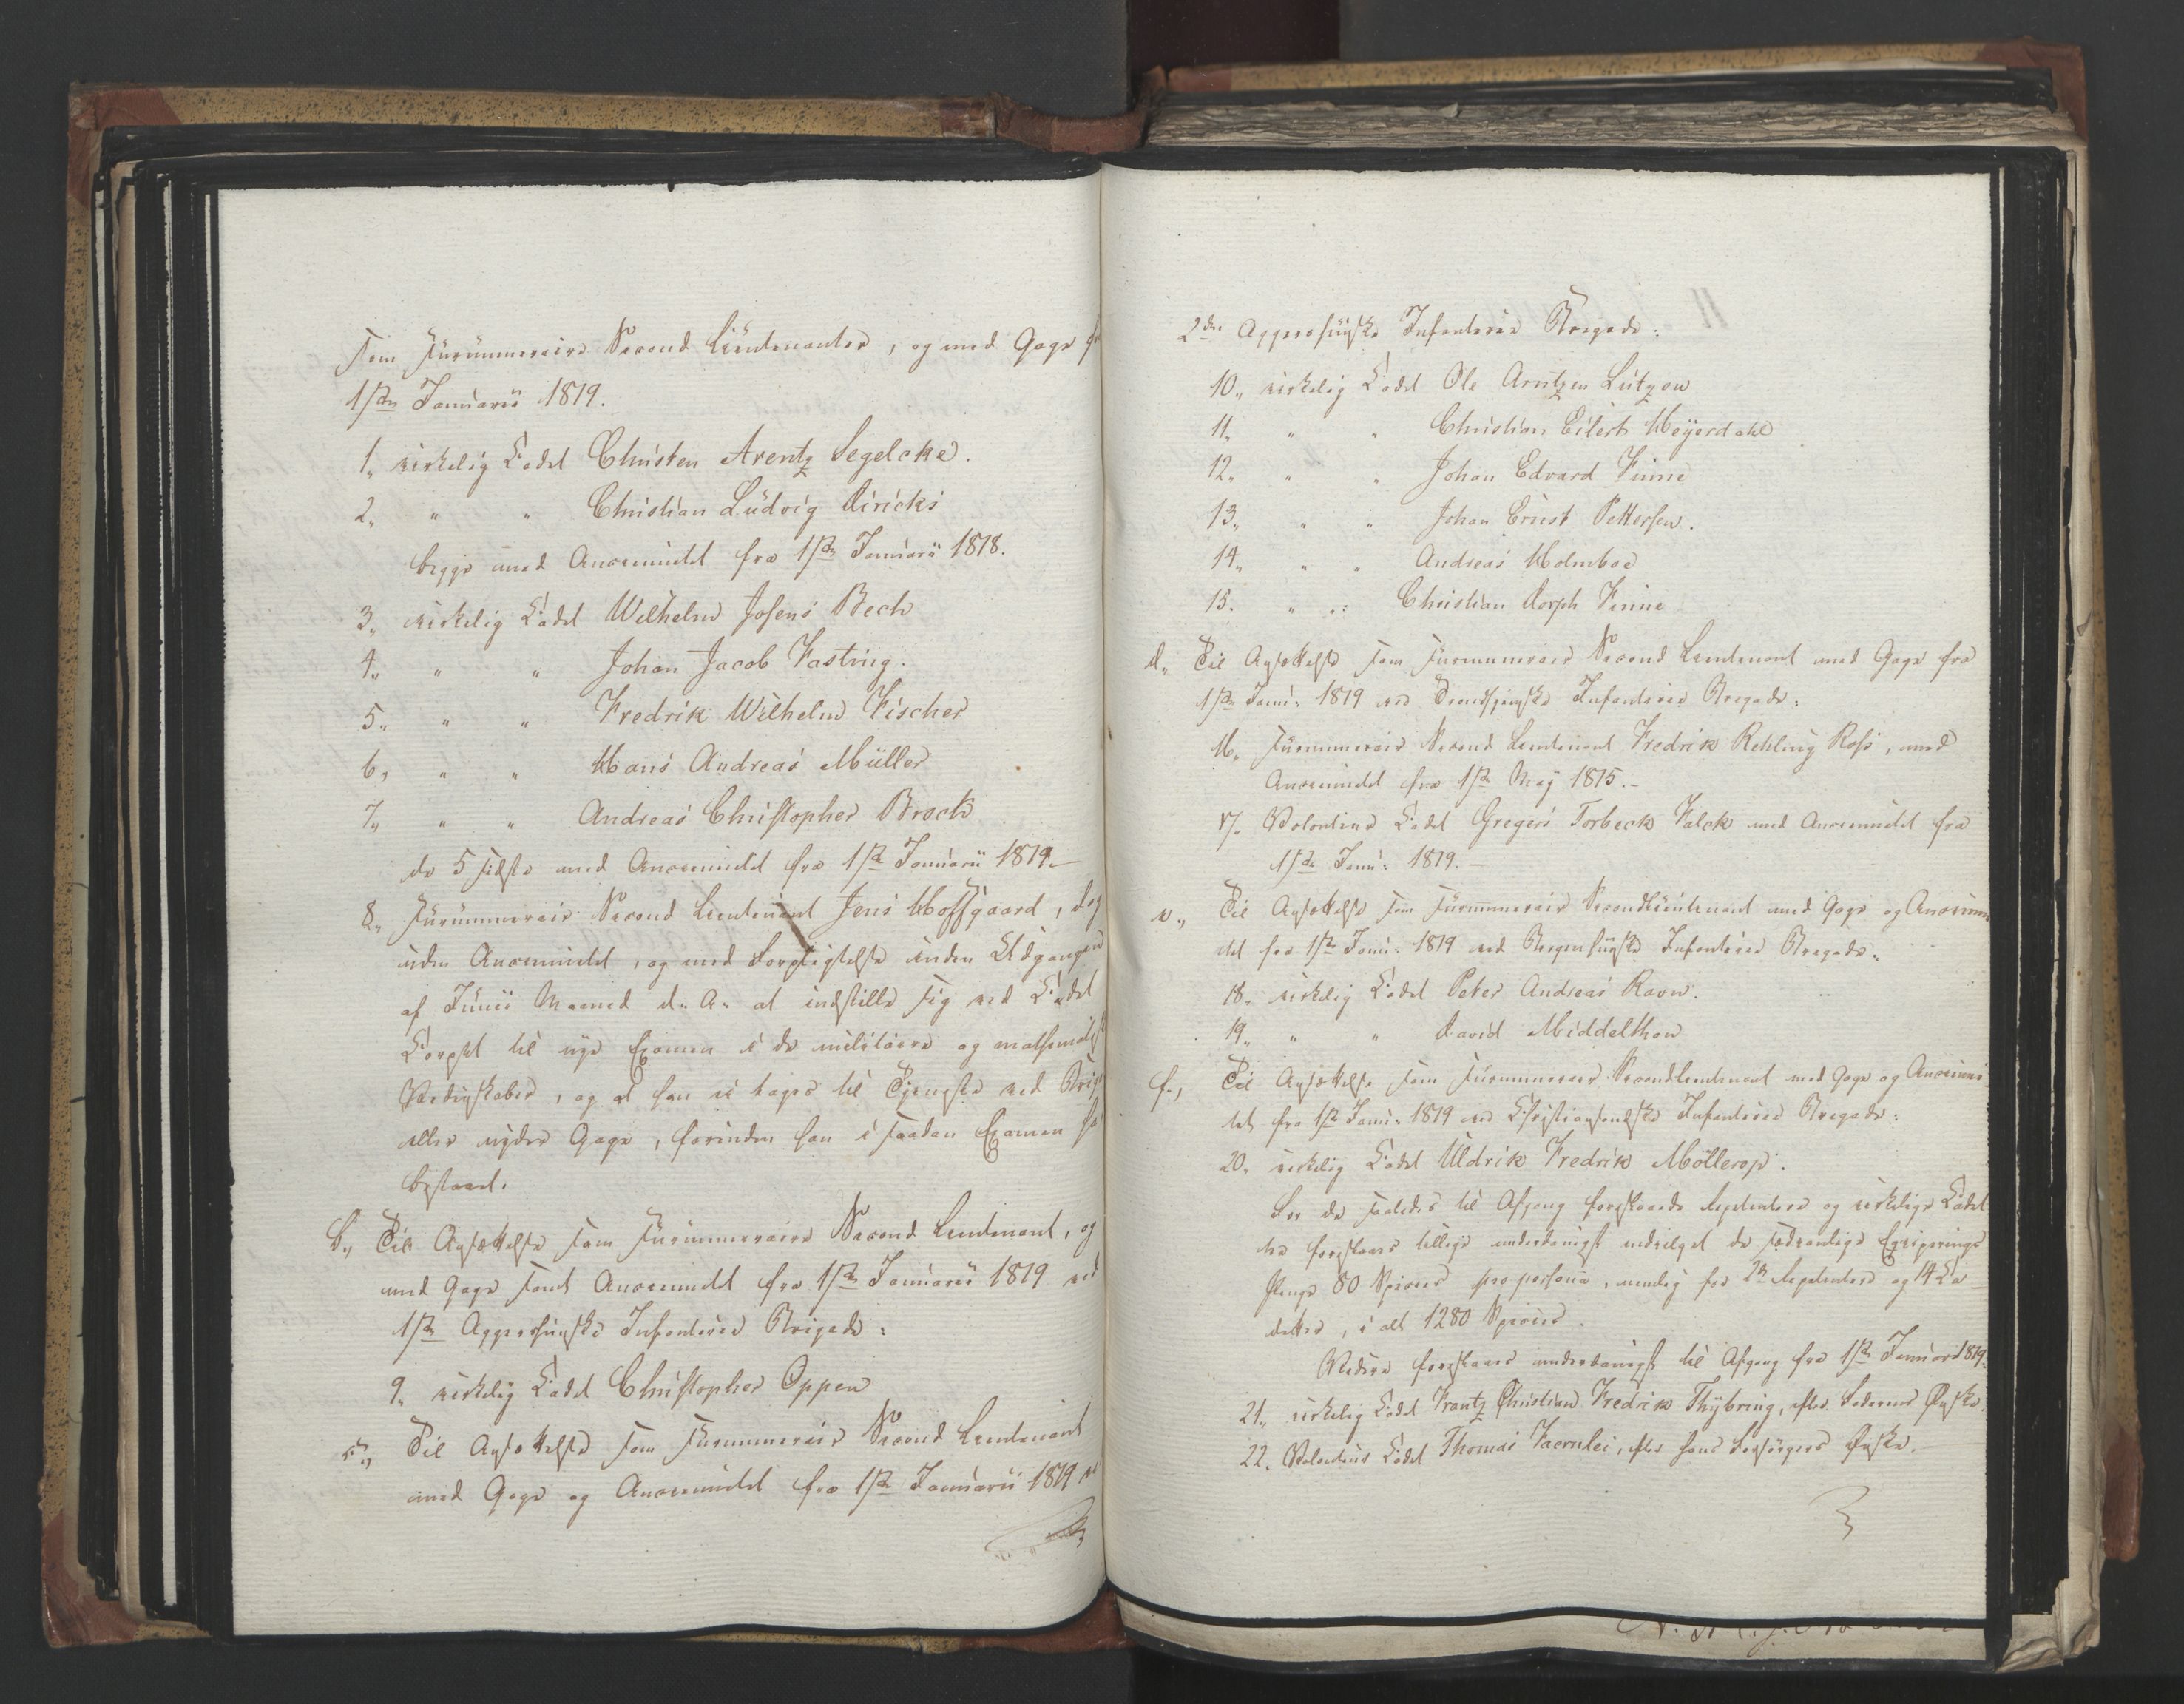 som Surnumeraire Second Lieutenanter, og med Gage fr
1ste Januarii 1819.
1, virkelig Cadet Christen Arentz Segelcke.
2, " " Christian Ludvig Diricks
begge med Anciennitet fra 1ste Januarii 1818.
3, virkelig Cadet Wilhelm Jokens Bech
4, " " Johan Jacob Fasting.
5, " " Fredrik Wilhelm Fischer
6, " " Hans Andreas Müller
7, " " Andreas Christopher Brock
de 5 sidste med Anciennitet fra 1ste Januarii 1819.
8, Surnumerair Second Lieutenant Jens Hoffgaard, dog
uden Anciennitet, og med Forpligtelse inden Udgangen
af Junii Maaned d. A. at indstille sig ved Cadet
Corpset til nye Examen i de militaire og mathematiske
Videnskaber, og at han ei tages til Tjeneste ved Brig
eller nyder Gage, forinden han i saadan Examen ha
bestaaet.
b., Til Ansættelse som Surnumeraire Second Lieutenant, og
med Gage samt Anciennitet fra 1ste Januarii 1819 ved
1ste Aggershuuske Infanterie Brigade:
9, virkelig Cadet Christopher Oppen
c., Til Ansættelse som Surnumerair Second Lieutenant
med Gage og Anciennitet fra 1ste Januarii 1819 v
2den Aggershuuske Infanterie Brigade:
10, virkelig Cadet Ole Arntzen Lützow
11, " " Christian Eilert Heyerdahl
12, " " Johan Edvard Finne
13, " " Johan Ernst Pettersen.
14, " " Andreas Holmboe
15. " " Christian Dorph Finne
d., Til Ansættelse som Surnumerair Second Lieutenant med Gage fra
1ste Janu: 1819 ved Trondhjemske Infanterie Brigade:
16, Surnumerair Second Lieutenant Fredrik Rehling Ross, med
Anciennitet fra 1ste Maj 1815.-
17, Volontair Cadet Gregers Torbeck Falck med Anciennitet fra
1ste Janu: 1819.-
e., Til Ansættelse som Surnumerair Secondlieutenant med Gage og Ancienni
tet fra 1ste Janu: 1819 ved Bergenhuuske Infanterie Brigade:
18, virkelig Cadet Peter Andreas Ravn.
19, " " David Middelthon
f., Til Ansættelse som Surnumerair Secondlieutenant med Gage og Ancienni
tet fra 1ste Janu: 1819 ved Christiansandske Infanterie Brigade:
20, virkelig Cadet Uldrik Fredrik Möllerop.
For de saaledes til Afgang foreslaaede Aspiranter og virkelige Cadet
ter foreslaaes tillige underdanigst indvilget de sædvanlige Eqviperings
Penge 80 Species pro persona, nemlig for 2de Aspiranter og 14 Ca
detter, i alt 1280 Species.
Videre foreslaaes underdanigst til Afgang fra 1ste Januar 1819.
21, virkelig Cadet Frantz Christian Fredrik Thybring, efter Faderens Ønske.
22. Volontair Cadet Thomas Jacrulei, efter hans Forsørgers Ønske.